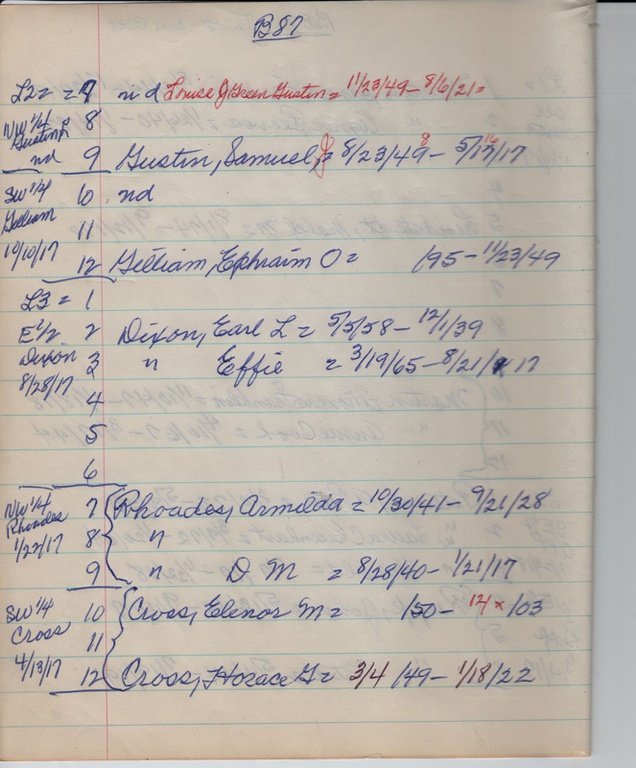 B87
L2 = 7 nd Louise J Green Gustin = 11/23/49 - 8/6/21 =
NW 1/4 8
Gustin
nd 9 Gustin, Samuel, J = 8/23/49 8 - 5/17/17 16
SW 1/4 10 nd
Gilliam 11
10/10/17 12 Gilliam, Ephraim O = /95 - 11/23/49
L3 = 1
E 1/2 2 Dixon, Earl L = 5/5/58 - 12/1/39
Dixon 3 " Effie = 3/19/65 - 8/21/17
8/28/17
4
5
6
NW 1/4 7 Rhoades, Armilda = 10/30/41 - 9/21/28
Rhoades
1/22/17 8 "
9 " D M = 8/28/40 - 1/21/17
SW 1/4 10 Cross, Elenor M = /50 - 12/ x /03
Cross 11
4/13/17 12 Cross, Horace G = 3/4/49 - 1/18/22